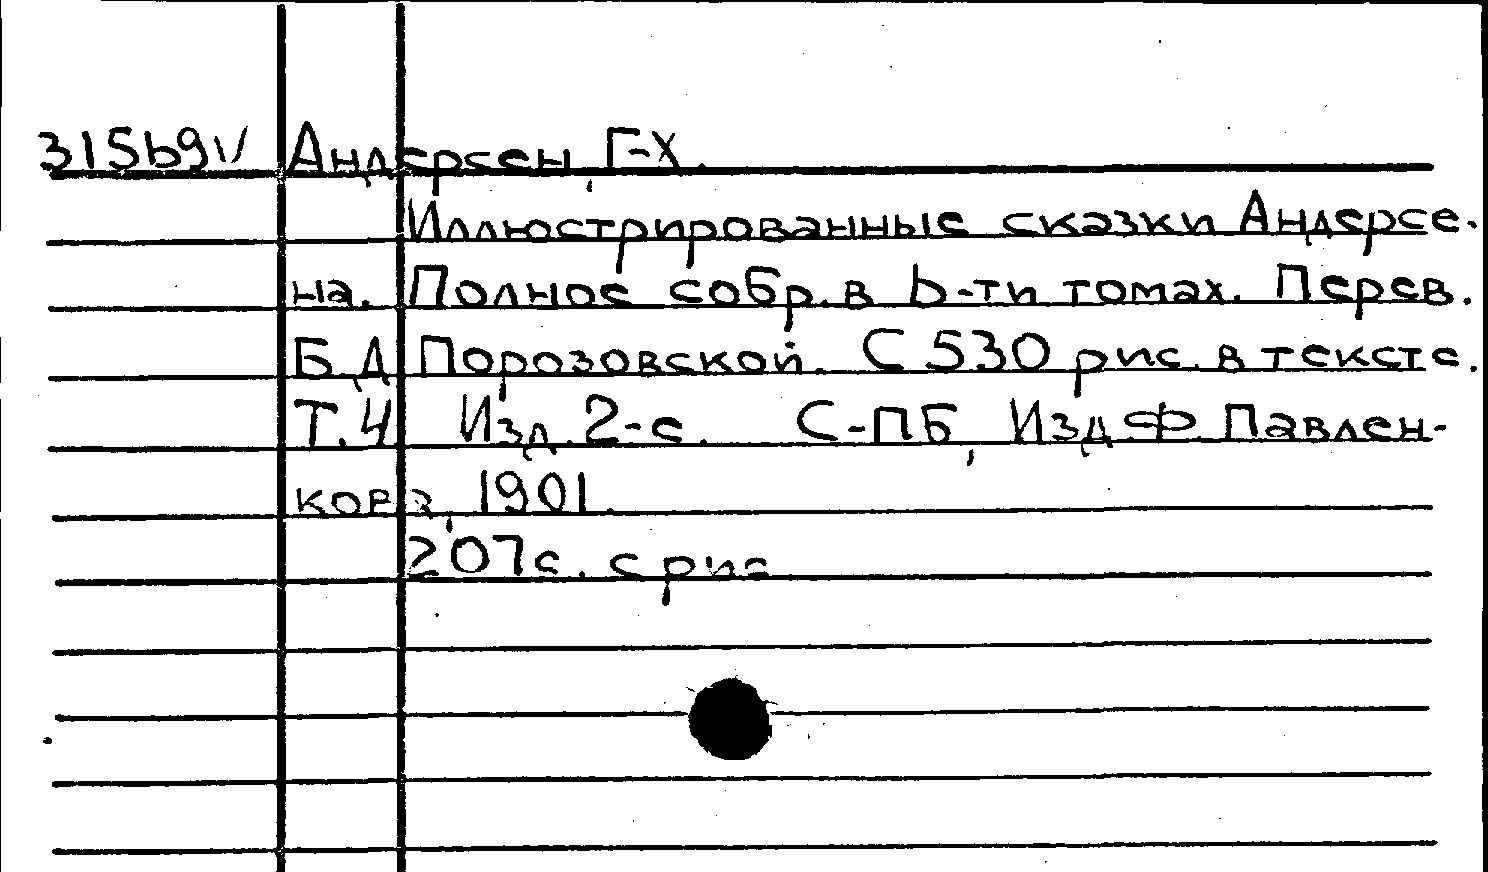 315691V Андерсен, Г-Х.
Иллюстрированные сказки Андерсе-
на. Полное собр. в 6-ти томах. Перев.
Б.Д. Порозовской. С 530 рис. в тексте.
Т.4 Изд. 2-е. С-ПБ, Изд. Ф. Павлен-
кова, 1901.
207с. с рис